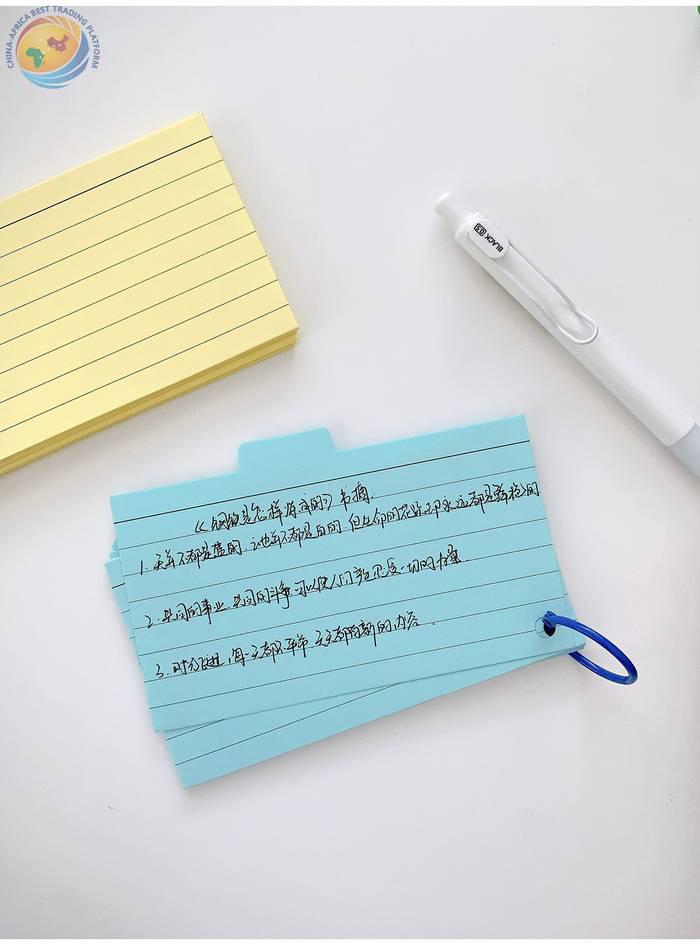 CHINA-AFRICA BEST TRADING PLATFORM
BLACK 0.5
《钢铁是怎样炼成的》书摘
1. 天并不都是蓝的, 云也并不都是白的, 但生命的花朵却永远都是鲜艳的
2. 共同的事业, 共同的斗争, 可以使人们忍受一切的
3. 时代, 每一天都不, 天天都有新的内容.